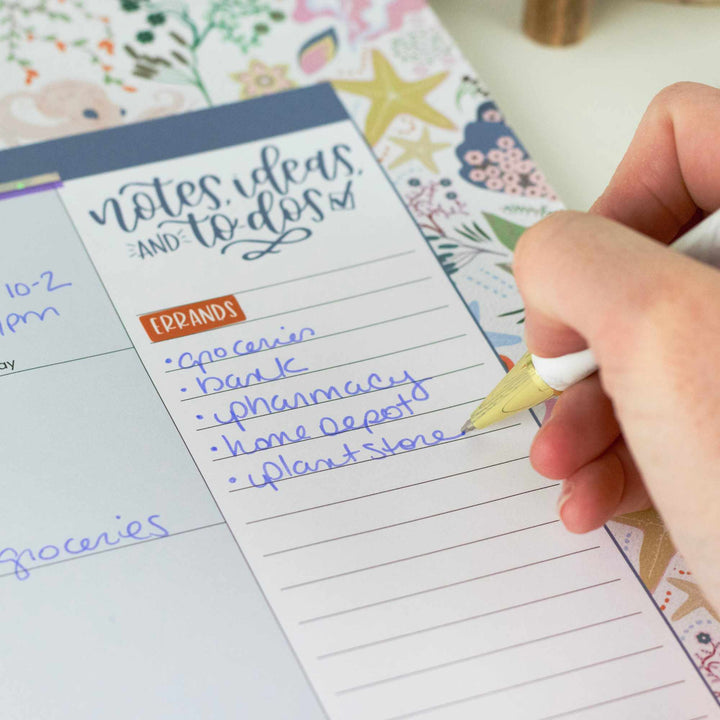 notes, ideas,
AND to-dos
10-2
pm
ay
ERRANDS
• groceries
• bank
• pharmacy
• home Depot
• plant store
groceries